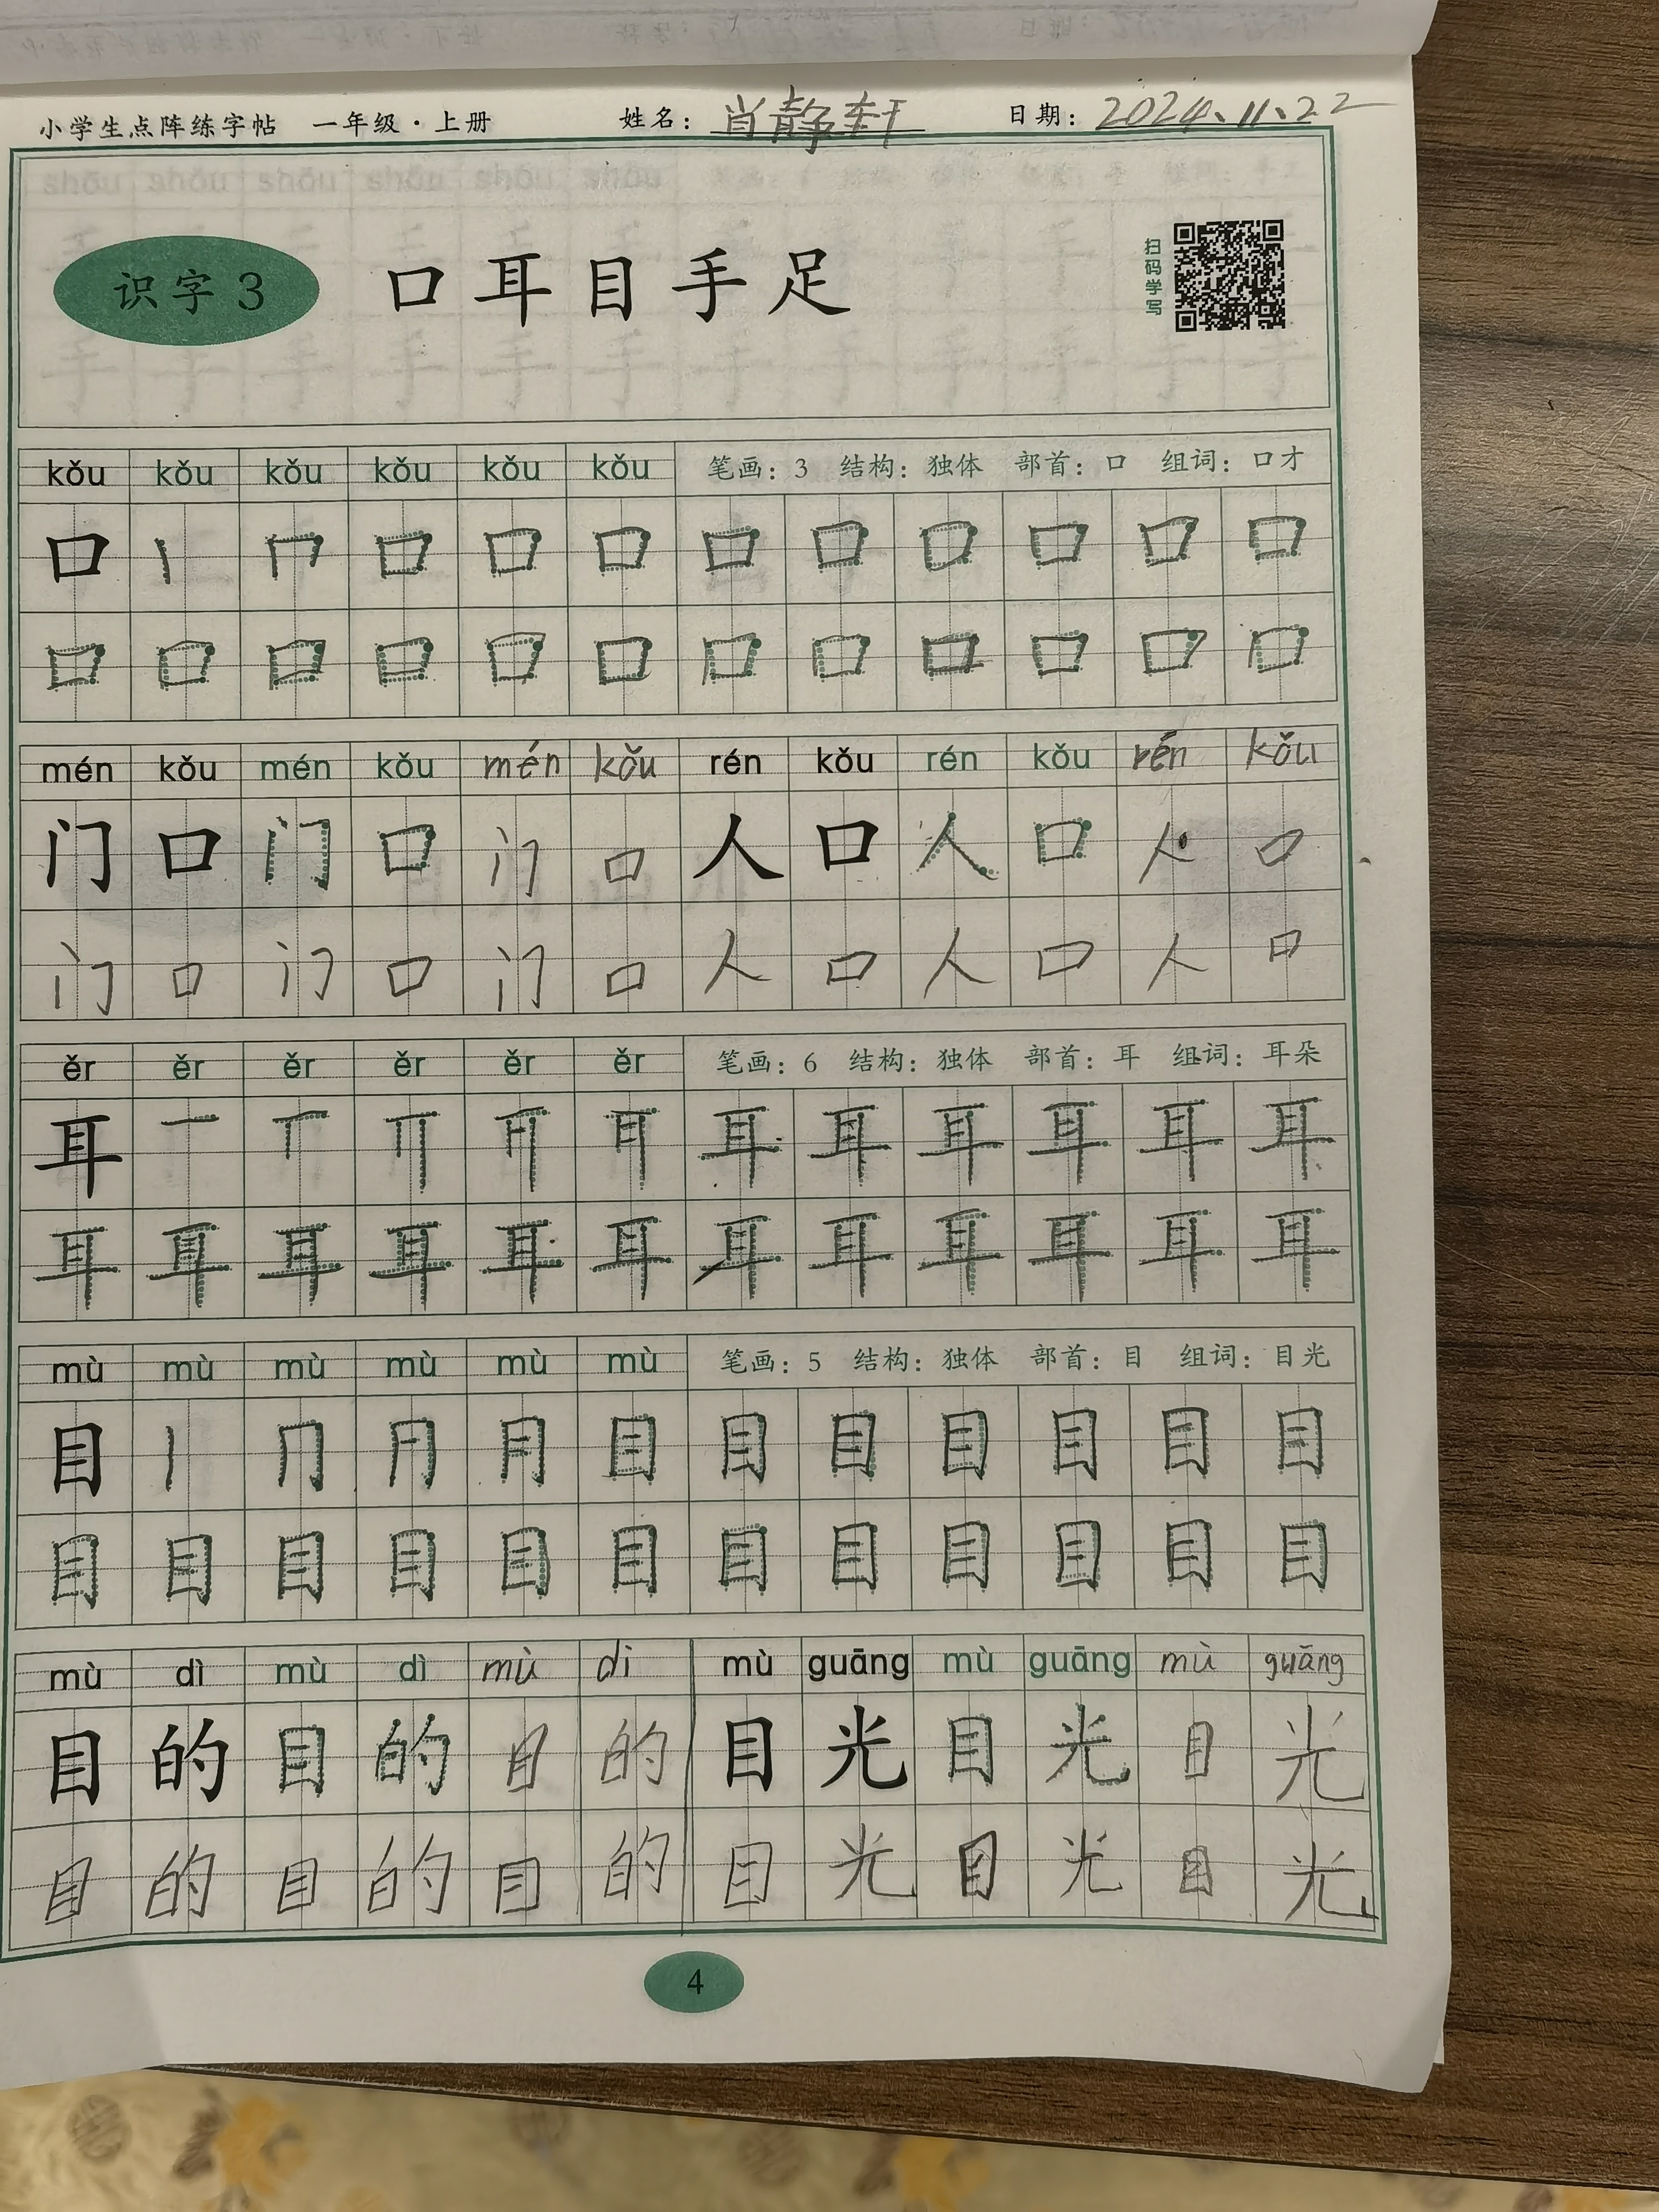 小学生点阵练字帖 一年级·上册 姓名：肖静轩 日期：2024、11、22
识字3 口耳目手足
扫码学写
kǒu kǒu kǒu kǒu kǒu kǒu 笔画：3 结构：独体 部首：口 组词：口才
口 丨 冂 口 口 口 口 口 口 口 口 口
口 口 口 口 口 口 口 口 口 口 口 口
mén kǒu mén kǒu mén kǒu rén kǒu rén kǒu rén kǒu
门 口 门 口 门 口 人 口 人 口 人 口
门 口 门 口 门 口 人 口 人 口 人 口
ěr ěr ěr ěr ěr ěr 笔画：6 结构：独体 部首：耳 组词：耳朵
耳 一 耳 耳 耳 耳 耳 耳
耳 耳 耳 耳 耳 耳 耳 耳 耳 耳 耳 耳
mù mù mù mù mù mù 笔画：5 结构：独体 部首：目 组词：目光
目 丨 冂 月 目 目 目 目 目 目 目
目 目 目 目 目 目 目 目 目 目 目 目
mù dì mù dì mù dì mù guāng mù guāng mù guāng
目 的 目 的 目 的 目 光 目 光 目 光
目 的 目 的 目 的 目 光 目 光 目 光
4